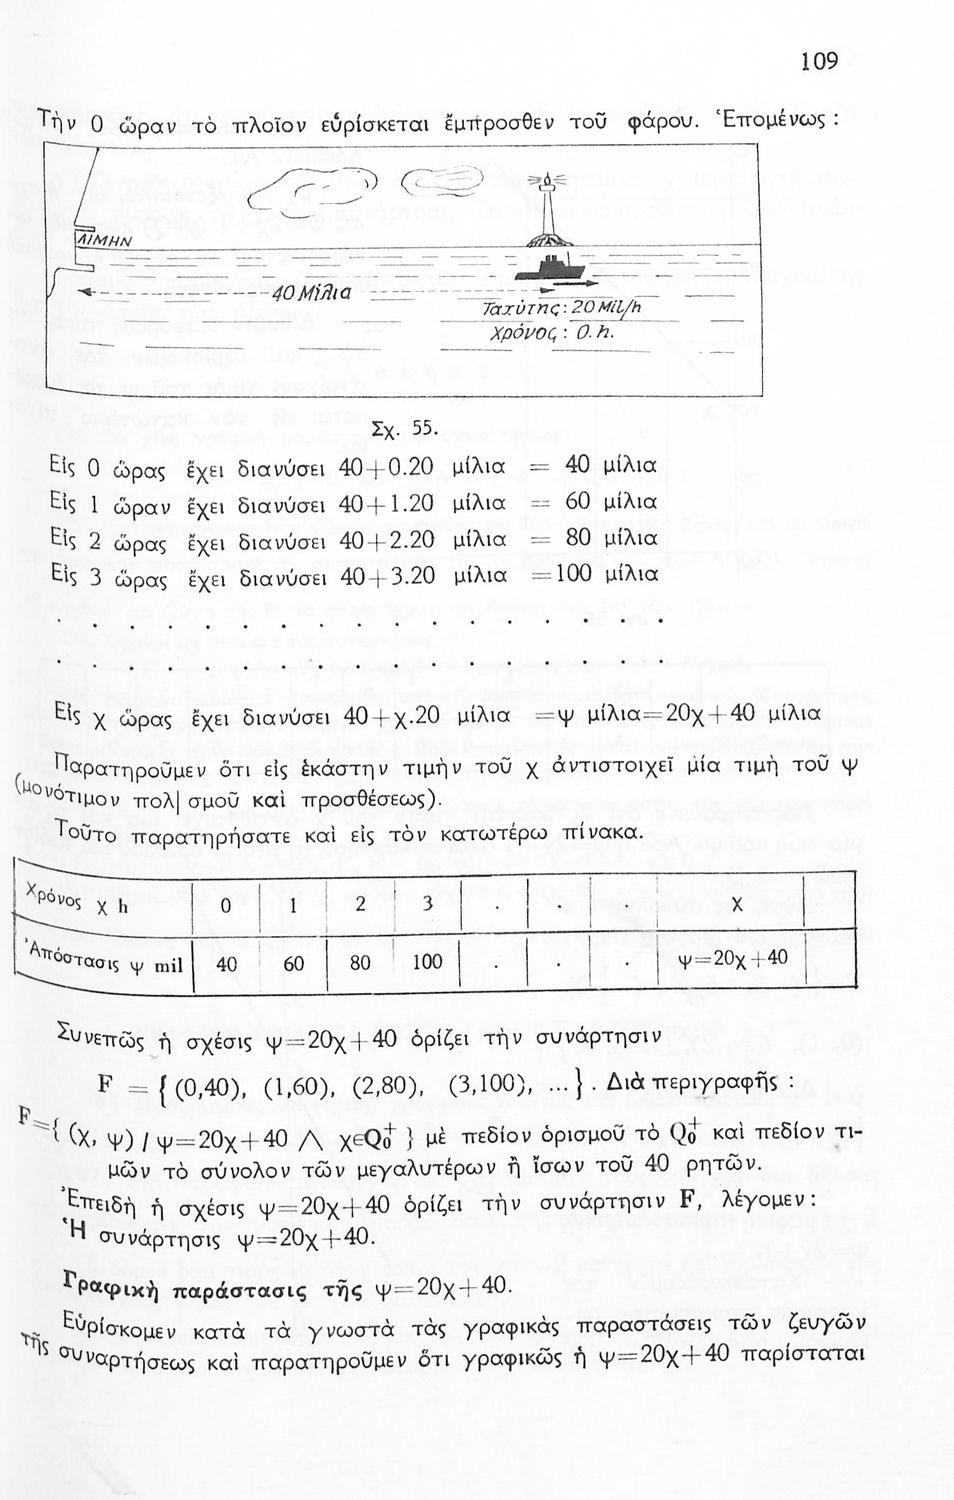 109
Τὴν 0 ὥραν τὸ πλοῖον εὑρίσκεται ἔμπροσθεν τοῦ φάρου. Ἑπομένως :
ΛΙΜΗΝ
40 Μίλια
Ταχύτης : 20 Mil/h
Χρόνος : 0. h.
Σχ. 55.
Εἰς 0 ὥρας ἔχει διανύσει 40+0.20 μίλια = 40 μίλια
Εἰς 1 ὥραν ἔχει διανύσει 40+1.20 μίλια = 60 μίλια
Εἰς 2 ὥρας ἔχει διανύσει 40+2.20 μίλια = 80 μίλια
Εἰς 3 ὥρας ἔχει διανύσει 40+3.20 μίλια =100 μίλια
. . . . . . . . . . . . . . . . . .
. . . . . . . . . . . . . . . . . .
Εἰς χ ὥρας ἔχει διανύσει 40+χ.20 μίλια =ψ μίλια=20χ+40 μίλια
Παρατηροῦμεν ὅτι εἰς ἑκάστην τιμὴν τοῦ χ ἀντιστοιχεῖ μία τιμὴ τοῦ ψ
(μονότιμον πολ| σμοῦ καὶ προσθέσεως).
Τοῦτο παρατηρήσατε καὶ εἰς τὸν κατωτέρω πίνακα.
Χρόνος χ h 0 1 2 3 . . . χ
Ἀπόστασις ψ mil 40 60 80 100 . . . ψ=20χ+40
Συνεπῶς ἡ σχέσις ψ=20χ+40 ὁρίζει τὴν συνάρτησιν
F = { (0,40), (1,60), (2,80), (3,100), ...} . Διὰ περιγραφῆς :
F={ (χ, ψ) / ψ=20χ+40 ⋀ χ∈Q₀⁺ } μὲ πεδίον ὁρισμοῦ τὸ Q₀⁺ καὶ πεδίον τι-
μῶν τὸ σύνολον τῶν μεγαλυτέρων ἢ ἴσων τοῦ 40 ρητῶν.
Ἐπειδὴ ἡ σχέσις ψ=20χ+40 ὁρίζει τὴν συνάρτησιν F, λέγομεν :
Ἡ συνάρτησις ψ=20χ+40.
Γραφικὴ παράστασις τῆς ψ=20χ+40.
Εὑρίσκομεν κατὰ τὰ γνωστὰ τὰς γραφικὰς παραστάσεις τῶν ζευγῶν
τῆς συναρτήσεως καὶ παρατηροῦμεν ὅτι γραφικῶς ἡ ψ=20χ+40 παρίσταται